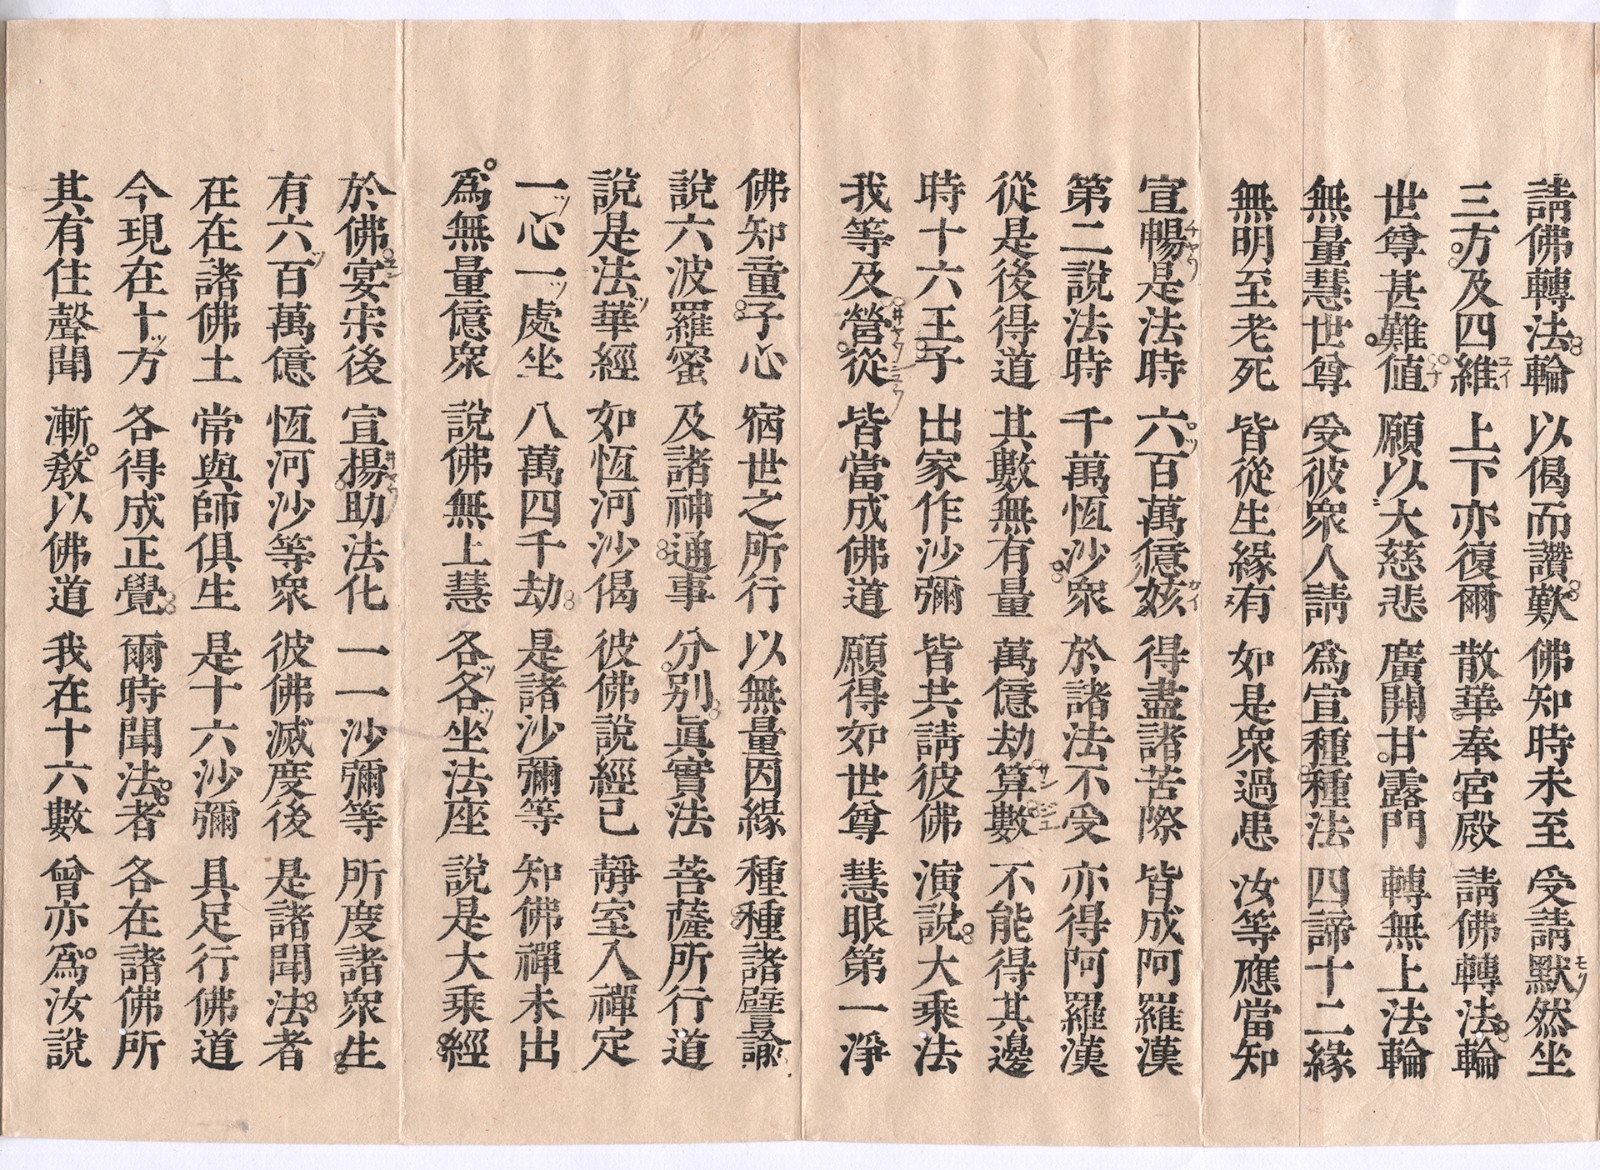 請佛轉法輪 以偈而讚歎 佛知時未至 受請默然坐
三方及四維 上下亦復爾 散華奉宮殿 請佛轉法輪
世尊甚難値 願以大慈悲 廣開甘露門 轉無上法輪
無量慧世尊 受彼衆人請 爲宣種種法 四諦十二緣
無明至老死 皆從生緣有 如是衆過患 汝等應當知
宣暢是法時 六百萬億姟 得盡諸苦際 皆成阿羅漢
第二說法時 千萬恆沙衆 於諸法不受 亦得阿羅漢
從是後得道 其數無有量 萬億劫算數 不能得其邊
時十六王子 出家作沙彌 皆共請彼佛 演說大乘法
我等及營從 皆當成佛道 願得如世尊 慧眼第一淨
佛知童子心 宿世之所行 以無量因緣 種種諸譬諭
說六波羅蜜 及諸神通事 分別眞實法 菩薩所行道
說是法華經 如恆河沙偈 彼佛說經已 靜室入禪定
一心一處坐 八萬四千劫 是諸沙彌等 知佛禪未出
爲無量億衆 說佛無上慧 各各坐法座 說是大乘經
於佛宴宋後 宣揚助法化 一一沙彌等 所度諸衆生
有六百萬億 恆河沙等衆 彼佛滅度後 是諸聞法者
在在諸佛土 常與師俱生 是十六沙彌 具足行佛道
今現在十方 各得成正覺 爾時聞法者 各在諸佛所
其有住聲聞 漸敎以佛道 我在十六數 曾亦爲汝說